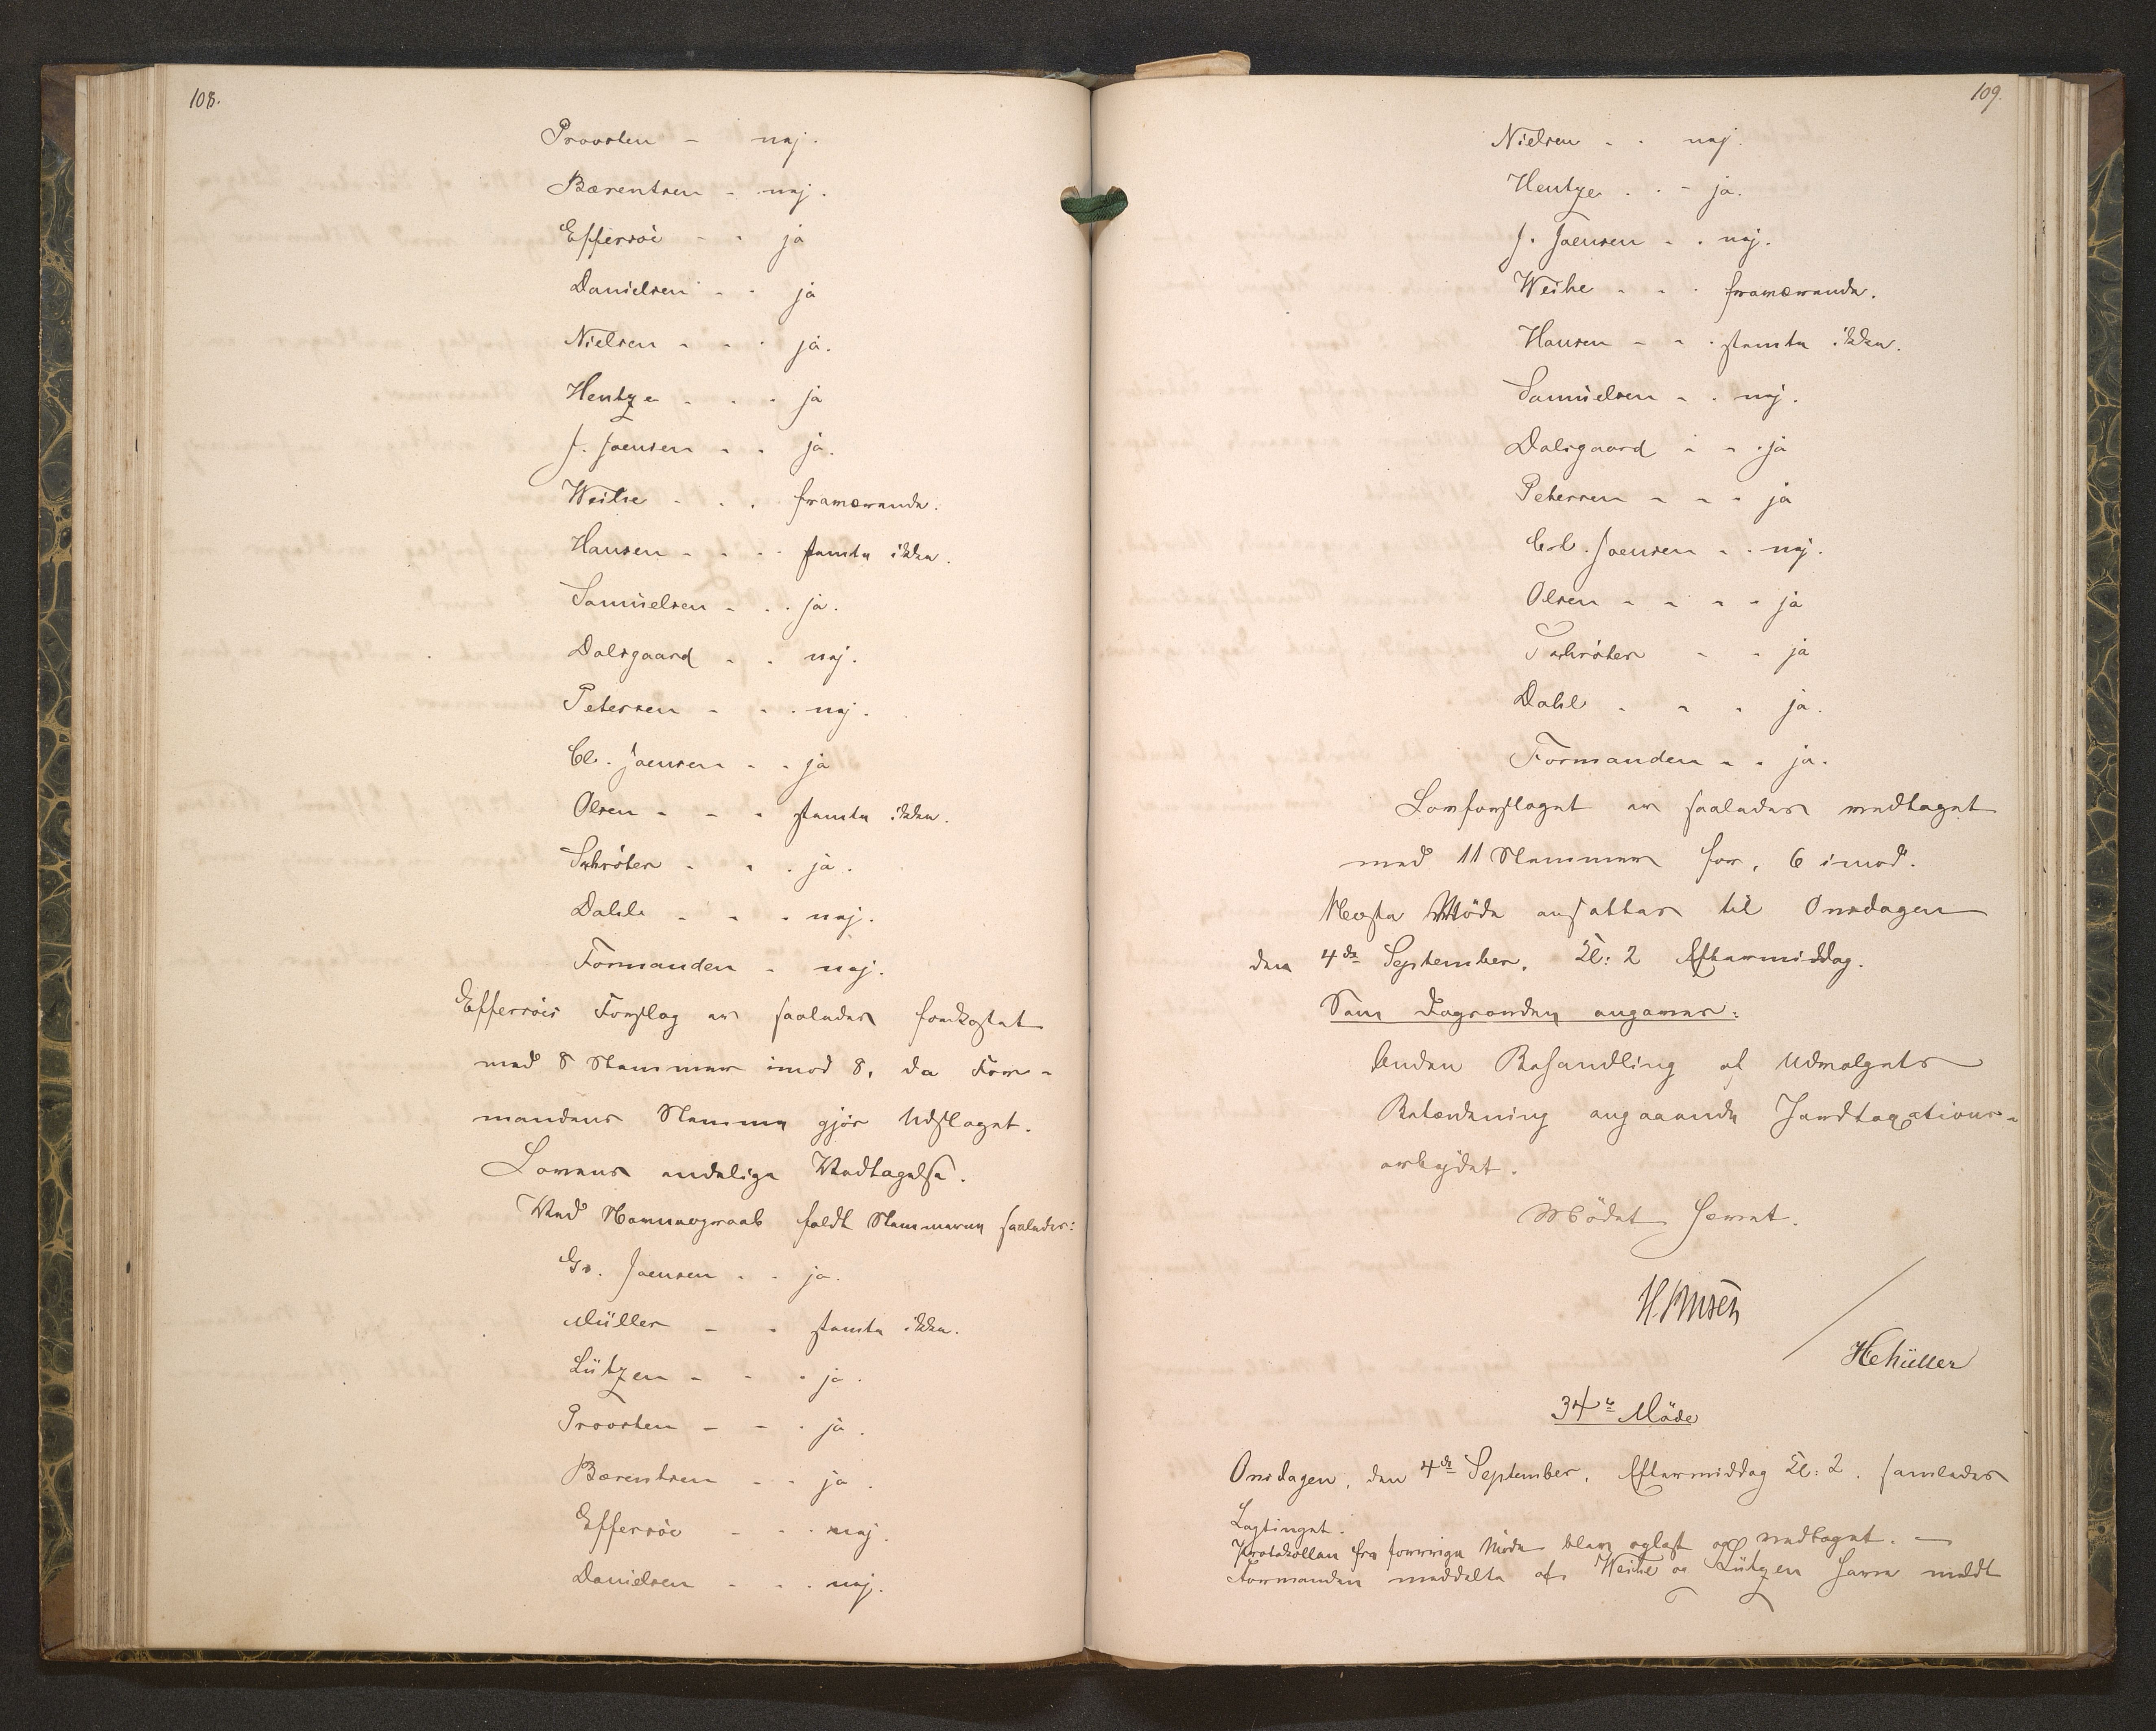 108.
Proosten - nej.
Bærentsen - nej.
Effersöe - - ja
Danielsen - - ja
Nielsen - - - ja.
Hentze - - - ja
J. Joensen - - ja.
Weihe - - - fraværende.
Hansen - - - - stemte ikke.
Samuelsen - - - ja.
Dalsgaard - - nej.
Petersen - - - nej.
Cl. Joensen - - ja
Olsen - - - stemte ikke.
Schröter - - - ja.
Dahl - - - nej.
Formanden - nej.
Effersöes Forslag er saaledes forkastet
med 8 Stemmer imod 8, da For-
mandens Stemme gjör Udslaget.
Lovens endelige Vedtagelse.
Ved Navneopraab faldt Stemmerne saaledes:
Gr. Joensen - - ja.
Müller - - stemte ikke.
Lützen - - - ja.
Proosten - - - ja.
Bærentsen - - ja.
Effersöe - - - nej.
Danielsen - - - nej.
109.
Nielsen - - nej.
Hentze - - - ja.
J. Joensen - - nej.
Weihe - - - fraværende.
Hansen - - - stemte ikke.
Samuelsen - - nej.
Dalsgaard - - - ja
Petersen - - - ja
Cl. Joensen - - nej.
Olsen - - - - ja
Schröter - - ja
Dahl - - - ja.
Formanden - - ja.
Lovforslaget er saaledes vedtaget
med 11 Stemmer for, 6 imod.
Næste Möde ansættes til Onsdagen
den 4de September, Kl: 2 Eftermiddag.
Som Dagsorden angaves:
Anden Behandling af Udvalgets
Betænkning angaaende Jordtaxations-
arbejdet.
Mödet hævet.
HMüller
34te Möde
Onsdagen, den 4de September, Eftermiddag Kl: 2, samledes
Lagtinget.
Protokollen fra forrige Möde blev oplæst og vedtaget. -
Formanden meddelte at Weihe og Lützen havde meldt